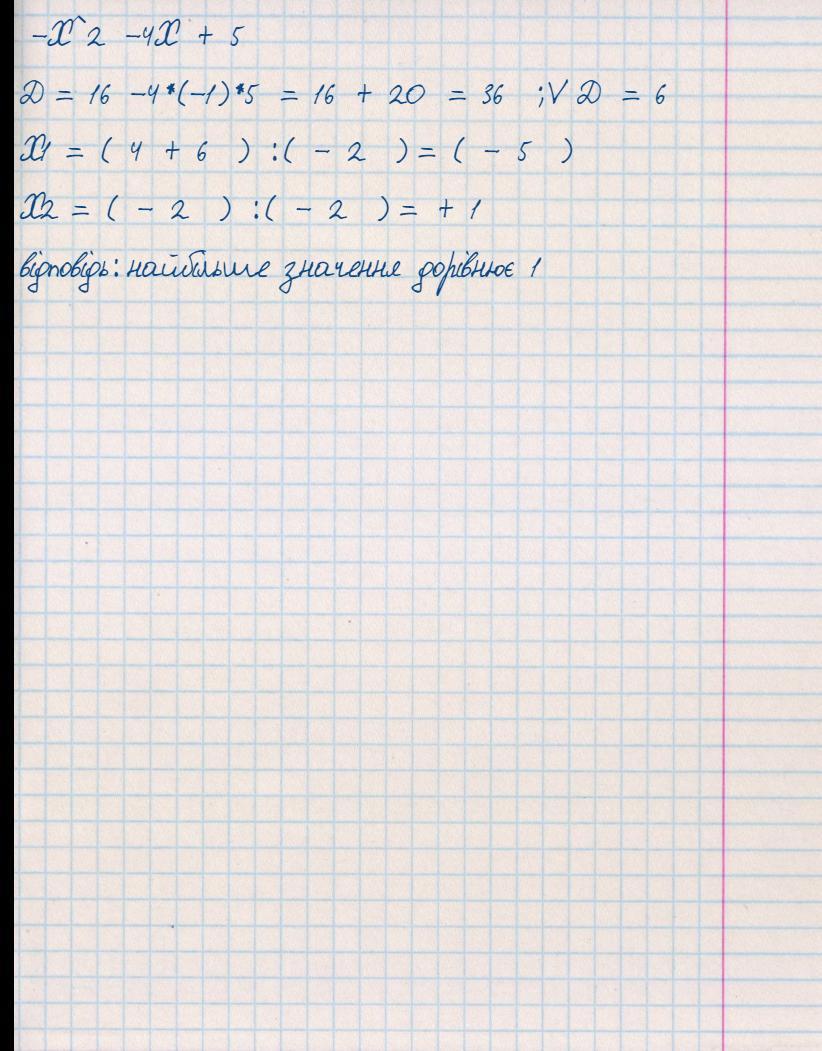 -X^2 -4X + 5
D = 16 -4*(-1)*5 = 16 + 20 = 36 ;√D = 6
X1 = ( 4 + 6 ) :( - 2 )= ( - 5 )
X2 = ( - 2 ) :( - 2 )= + 1
відповідь: найбільше значення дорівнює 1